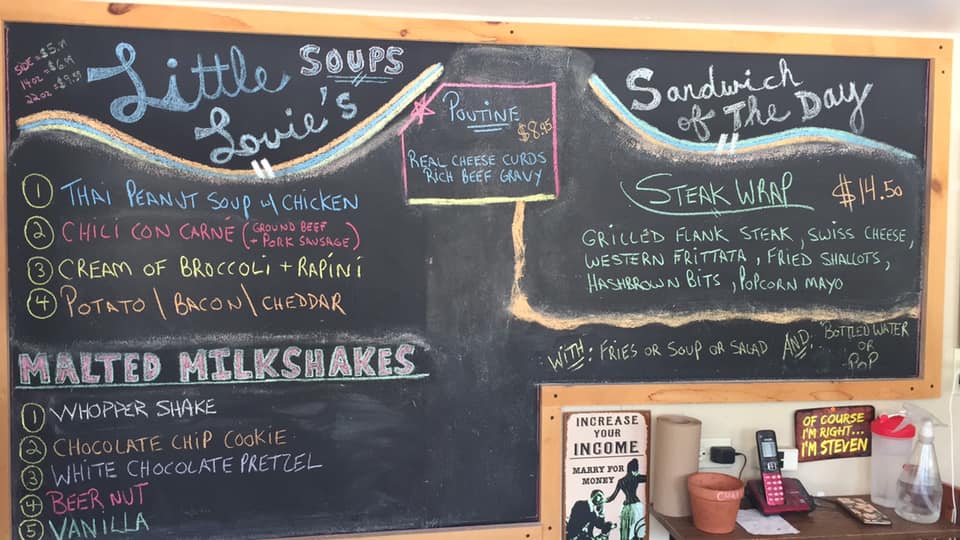 SIDE = $5.
14 oz = $6.
22 oz = $9.
Little
Lovie's
SOUPS
1 THAI PEANUT SOUP w/ CHICKEN
2 CHILI CON CARNÉ (GROUND BEEF
+ PORK SAUSAGE)
3 CREAM OF BROCCOLI + RAPINI
4 POTATO | BACON | CHEDDAR
MALTED MILKSHAKES
1 WHOPPER SHAKE
2 CHOCOLATE CHIP COOKIE
3 WHITE CHOCOLATE PRETZEL
4 BEER NUT
5 VANILLA
POUTINE
$8.95
REAL CHEESE CURDS
RICH BEEF GRAVY
Sandwich
of The Day
STEAK WRAP $14.50
GRILLED FLANK STEAK, SWISS CHEESE,
WESTERN FRITTATA, FRIED SHALLOTS,
HASHBROWN BITS, POPCORN MAYO
WITH: FRIES OR SOUP OR SALAD AND: BOTTLED WATER
OR
POP
INCREASE
YOUR
INCOME
MARRY FOR
MONEY
OF COURSE
I'M RIGHT...
I'M STEVEN